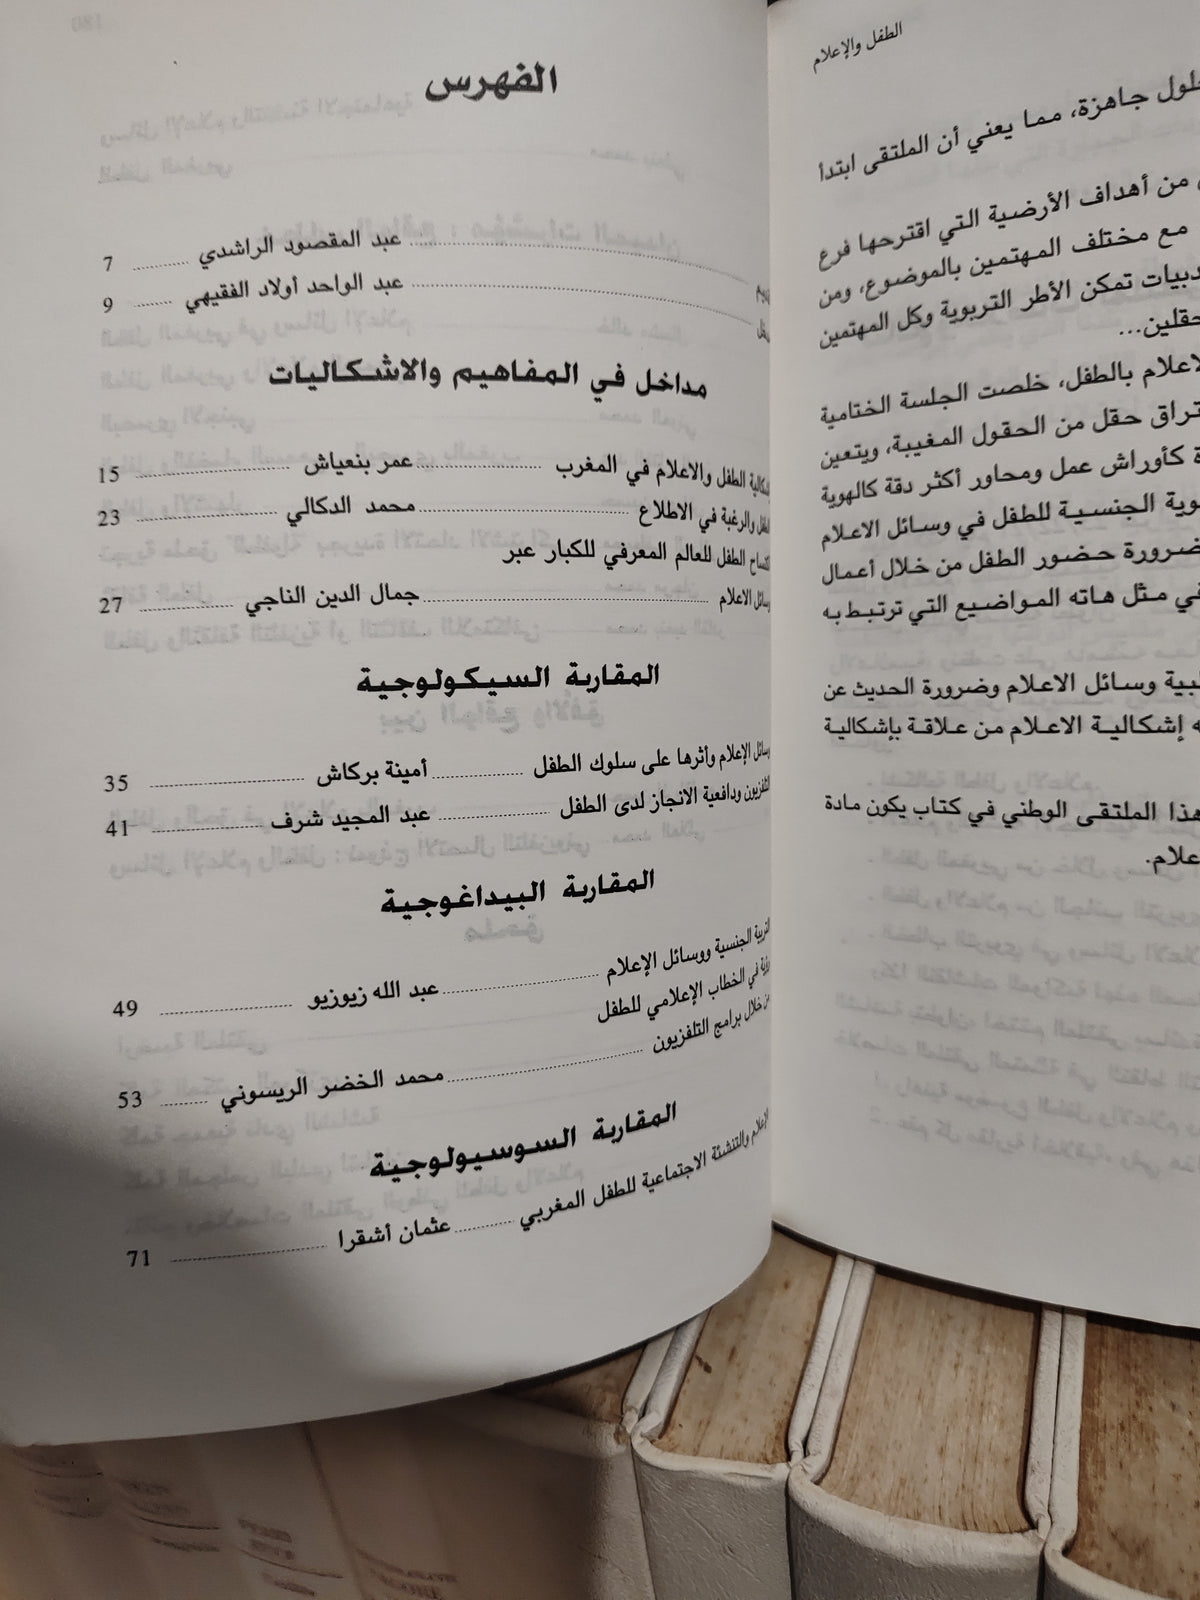 الطفل والإعلام
جاهزة، مما يعني أن الملتقى ابتدأ
من أهداف الأرضية التي اقترحها فرع
مع مختلف المهتمين بالموضوع، ومن
تمكن الأطر التربوية وكل المهتمين
الاعلام بالطفل، خلصت الجلسة الختامية
حقل من الحقول المغيبة، ويتعين
كأوراش عمل ومحاور أكثر دقة كالهوية
الجنسية للطفل في وسائل الاعلام
حضور الطفل من خلال أعمال
في مثل هاته المواضيع التي ترتبط به
وسائل الاعلام وضرورة الحديث عن
إشكالية الاعلام من علاقة بإشكالية
هذا الملتقى الوطني في كتاب يكون مادة
الفهرس
عبد المقصود الراشدي 7
عبد الواحد أولاد الفقيهي 9
مداخل في المفاهيم والاشكاليات
الطفل والاعلام في المغرب عمر بنعياش 15
والرغبة في الاطلاع محمد الدكالي 23
الطفل للعالم المعرفي للكبار عبر
وسائل الاعلام جمال الدين الناجي 27
المقاربة السيكولوجية
وسائل الإعلام وأثرها على سلوك الطفل أمينة بركاش 35
التلفزيون ودافعية الانجاز لدى الطفل عبد المجيد شرف 41
المقاربة البيداغوجية
التربية الجنسية ووسائل الإعلام عبد الله زيوزيو 49
في الخطاب الإعلامي للطفل
من خلال برامج التلفزيون محمد الخضر الريسوني 53
المقاربة السوسيولوجية
الإعلام والتنشئة الاجتماعية للطفل المغربي عثمان أشقرا 71